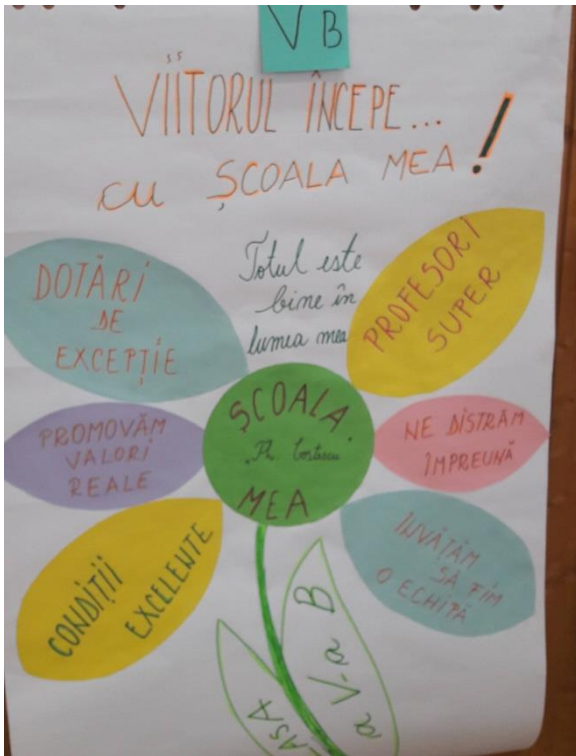 V B
VIITORUL ÎNCEPE...
CU ȘCOALA MEA!
Totul este
bine în
lumea mea
DOTĂRI
DE
EXCEPȚIE
PROFESORI
SUPER
PROMOVĂM
VALORI
REALE
ȘCOALA
MEA
NE DISTRĂM
ÎMPREUNĂ
CONDIȚII
EXCELENTE
ÎNVĂȚĂM
SĂ FIM
O ECHIPĂ
a V-a B